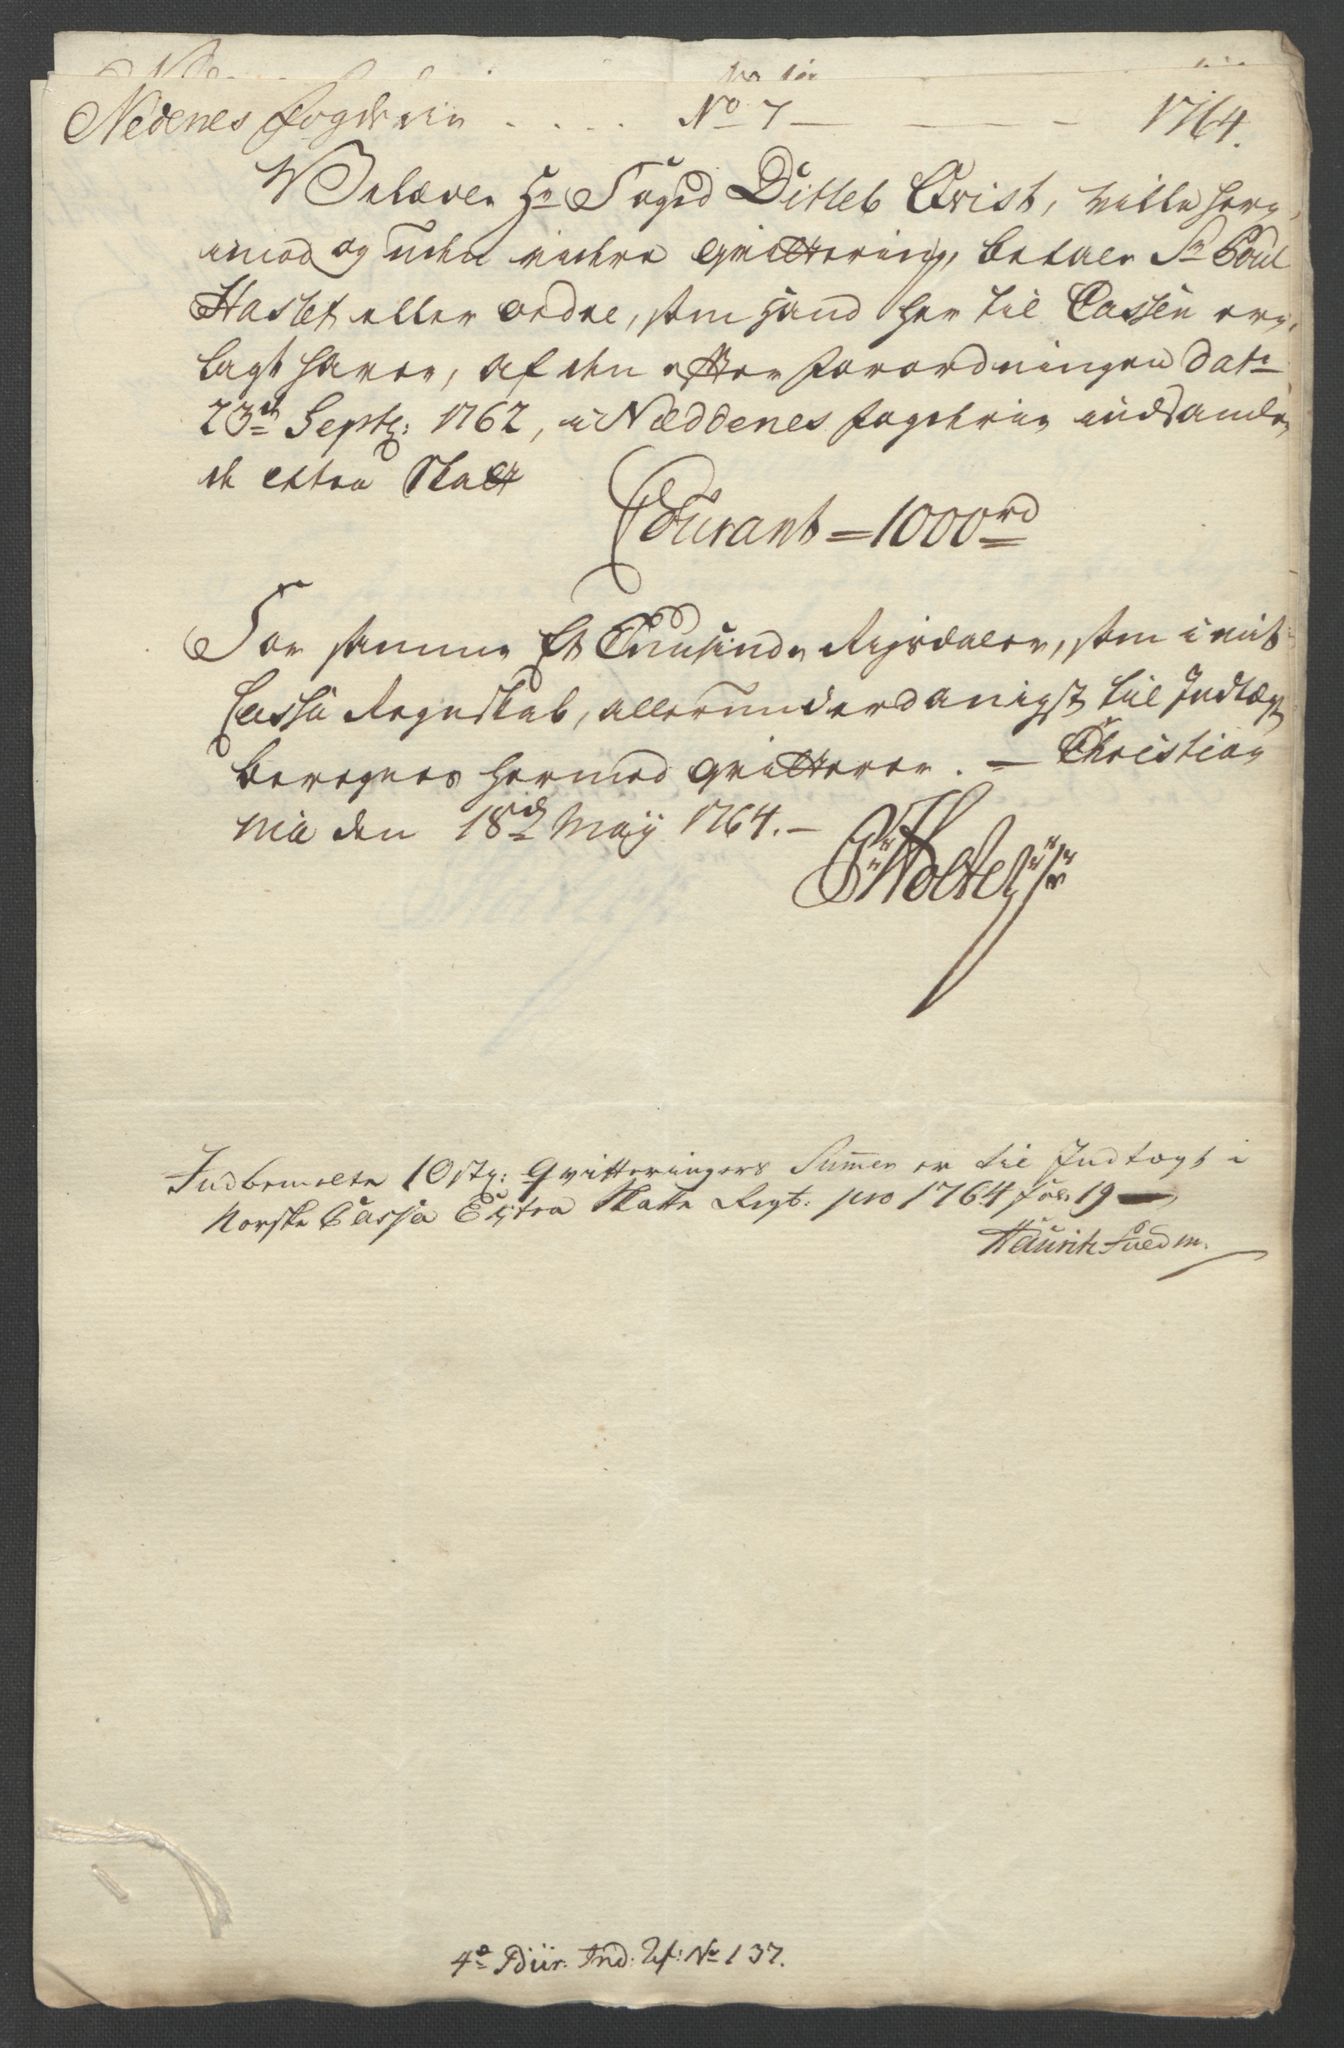 Nedenes fogderie . . . . No 7 — — — 1764.
Velædle Hr Foged Ditleb Qvist, ville herj
imod og uden videre qvittering, betale Sr Poul
Haslef eller ordre, som hand her til Cassen er
lagt haver, af den efter forordningen dat:
23de Septr: 1762, i Næddenes fogderie indsamle
de extra Skatt
Courant = 1000rd
For samme Et Tuusinde Rigsdaler, som i mit
Cassa Regnskab, allerunderdanigst til Indtægt
beregnes hermed qvitterer. — Christian
nia den 18de Maij 1764. —
Holter
Indbemelte 10 stk: Qvitteringers Summer er til Indtægt i
Norske Cassa Extra Skatte Regt: pro 1764 fol: 19 —
4de Ind: No 137.